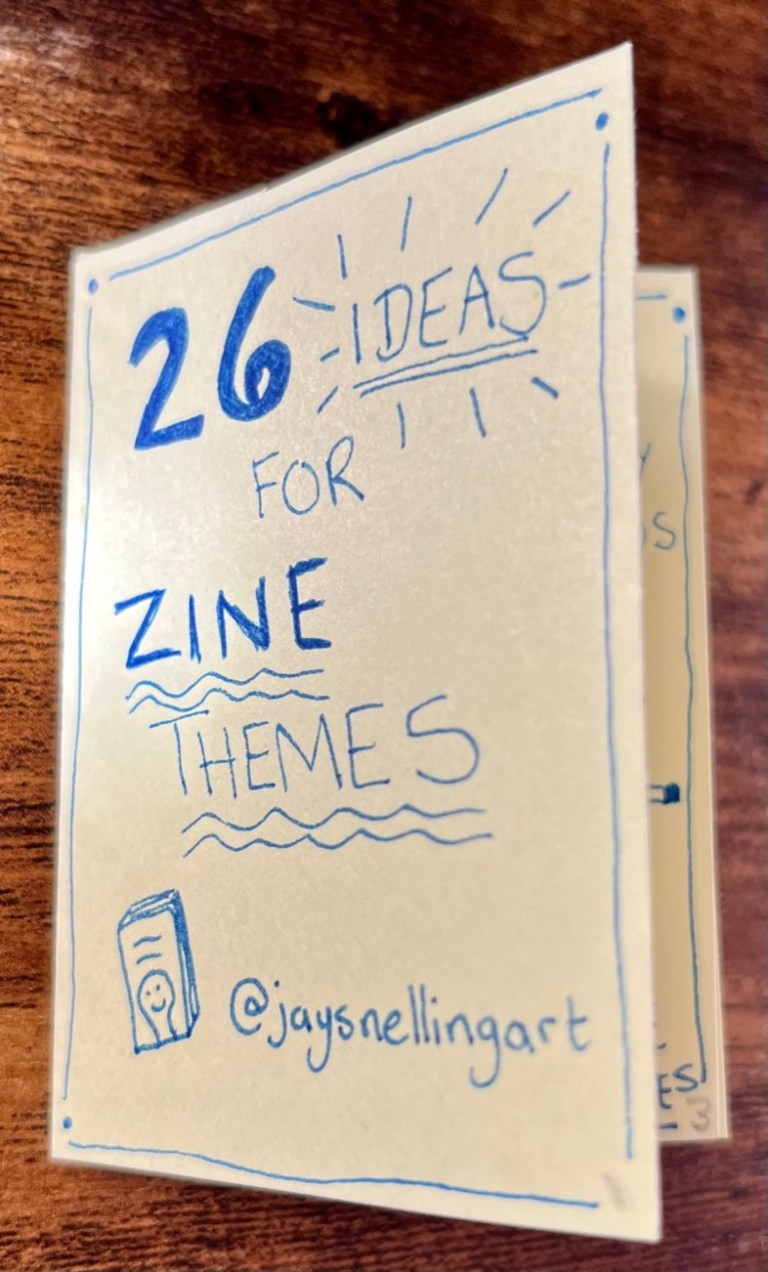 26 IDEAS
FOR
ZINE
THEMES
@jaysnellingart
3